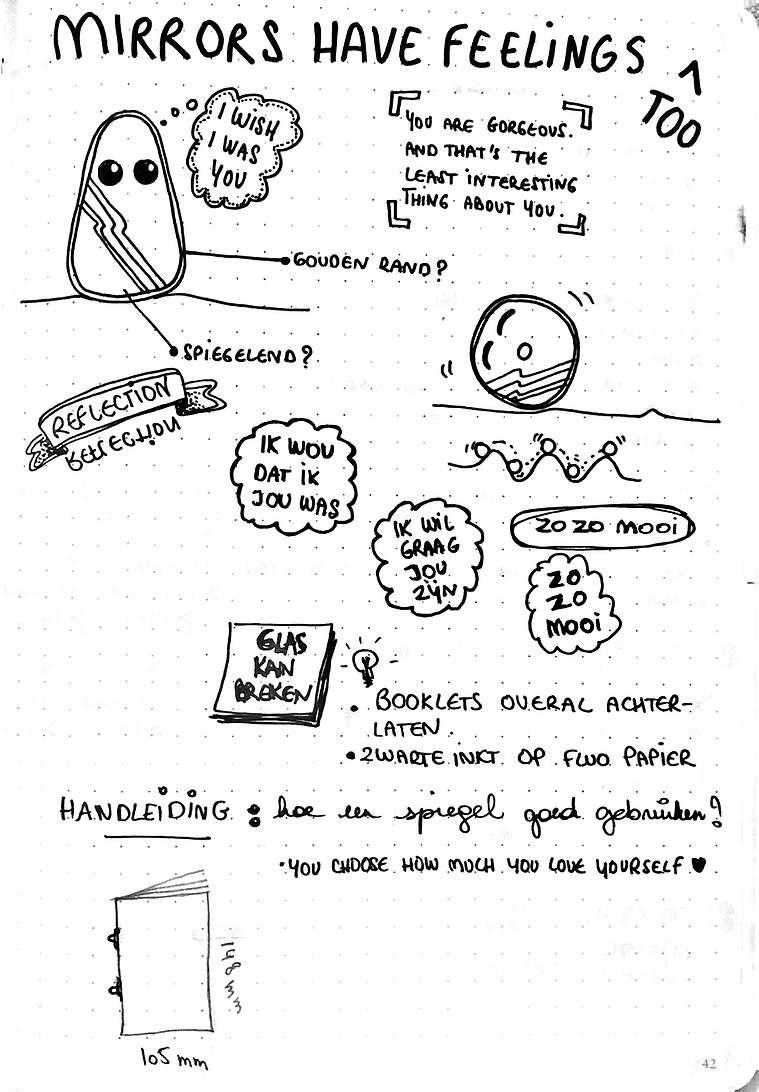 MIRRORS HAVE FEELINGS ^
TOO
I WISH
I WAS
YOU
YOU ARE GORGEOUS.
AND THAT'S THE
LEAST INTERESTING
THING ABOUT YOU.
GOUDEN RAND?
SPIEGELEND?
REFLECTION
REFLECTION
IK WOU
DAT IK
JOU WAS
IK WIL
GRAAG
JOU
ZIJN
ZO ZO MOOI
ZO
ZO
MOOI
GLAS
KAN
BREKEN
• BOOKLETS OVERAL ACHTER-
LATEN.
• ZWARTE INKT OP FLUO PAPIER
HANDLEIDING: hoe een spiegel goed gebruiken?
• YOU CHOOSE HOW MUCH YOU LOVE YOURSELF ♥
148mm
105 mm
42